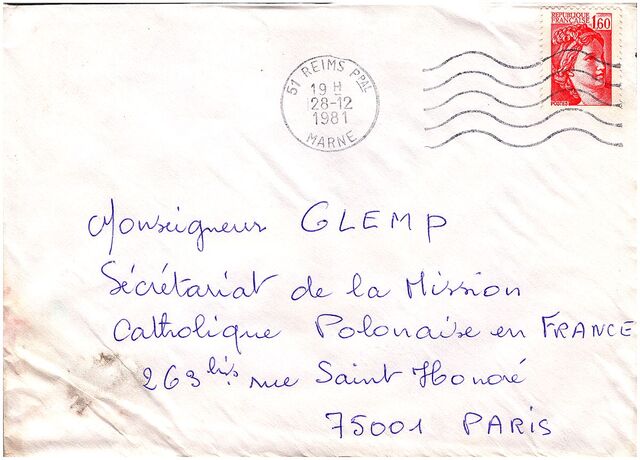 REPUBLIQUE
FRANÇAISE 1,60
51 REIMS PPAL
19 H
28-12
1981
MARNE
Monseigneur GLEMP
Sécrétariat de la Mission
Catholique Polonaise en FRANCE
263 bis rue Saint Honoré
75001 PARIS